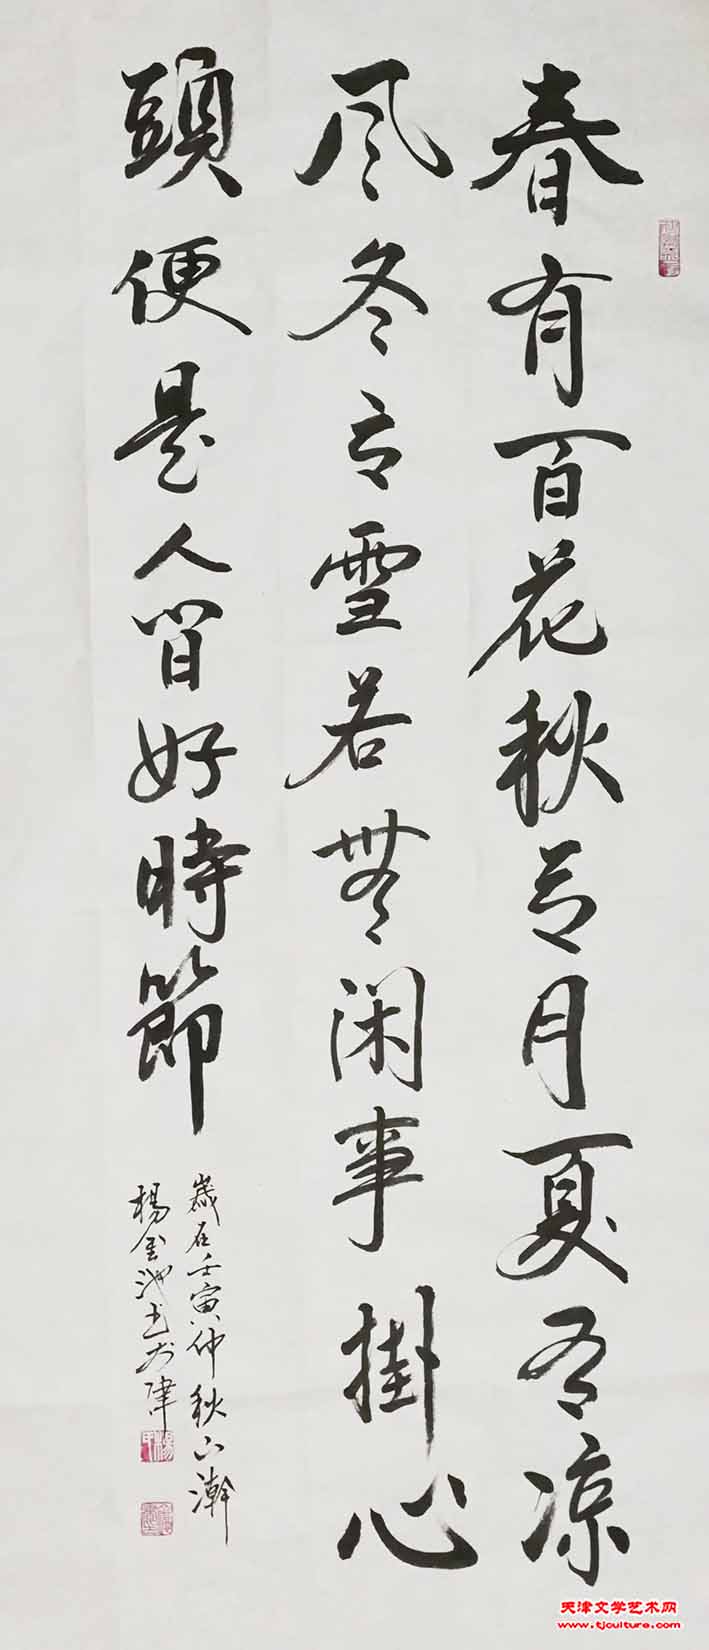 春有百花秋有月夏有凉
风冬有雪若無闲事掛心
頭便是人间好時節
歲在壬寅仲秋山瀚
楊金池书於津
天津文学艺术网
www.tjculture.com